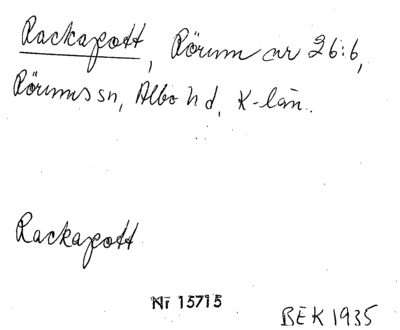 Rackapott, Rörum nr 26:6,
Rörums sn, Albo hd, K-län.
Rackapott
Nr 15715
BEK 1935